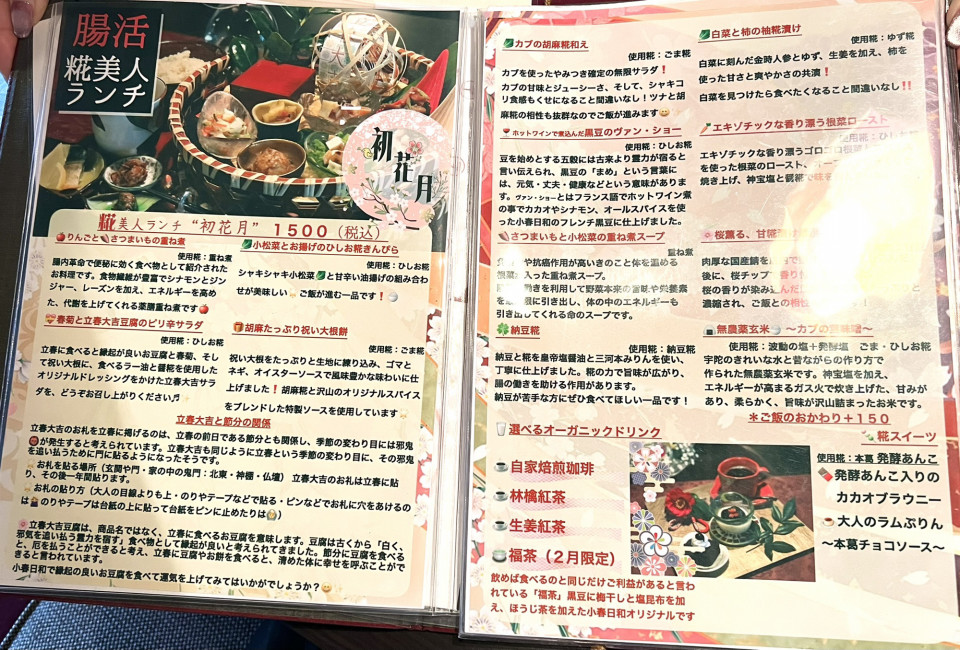 腸活
糀美人
ランチ
初花月
糀美人ランチ "初花月" 1500(税込)
りんごとさつまいもの重ね煮
使用糀：重ね煮
腸内革命で便秘に効く食べ物として紹介された
お料理です。食物繊維が豊富でシナモンとジン
ジャー、レーズンを加え、エネルギーを高め
た、代謝を上げてくれる薬膳重ね煮です
小松菜とお揚げのひしお糀きんぴら
使用糀：ひしお糀
シャキシャキ小松菜と甘辛い油揚げの組み合わ
せが美味しい ご飯が進む一品です！
春菊と立春大吉豆腐のピリ辛サラダ
使用糀：ひしお糀
立春に食べると縁起が良いお豆腐と春菊、そし
て祝い大根に、食べるラー油と醤糀を使用した
オリジナルドレッシングをかけた立春大吉サラ
ダを、どうぞお召し上がりください♬
胡麻たっぷり祝い大根餅
使用糀：ごま糀
祝い大根をたっぷりと生地に練り込み、ゴマと
ネギ、オイスターソースで風味豊かな味わいに仕
上げました！胡麻糀と沢山のオリジナルスパイス
をブレンドした特製ソースを使用しています
立春大吉と節分の関係
立春大吉のお札を立春に掲げるのは、立春の前日である節分とも関係し、季節の変わり目には邪鬼
が発生すると考えられています。立春大吉も同じように立春という季節の変わり目に、その邪鬼
を追い払うために門に貼るようになったそうです。
お札を貼る場所（玄関や門・家の中の鬼門：北東・神棚・仏壇） 立春大吉のお札は立春に貼
り、その後一年間貼ります。
お札の貼り方（大人の目線よりも上・のりやテープなどで貼る・ピンなどでお札に穴をあけるの
は のりやテープは台紙の上に貼って台紙をピンに止めたりは）
立春大吉豆腐は、商品名ではなく、立春に食べるお豆腐を意味します。豆腐は古くから「白く、
邪気を追い払う霊力を宿す」食べ物として縁起が良いと考えられてきました。節分に豆腐を食べる
と、厄を払うことができると考え、立春に豆腐やお餅を食べると、清めた体に幸せを呼ぶことがで
きると言われています。
小春日和で縁起の良いお豆腐を食べて運気を上げてみてはいかがでしょうか？
カブの胡麻糀和え
使用糀：ごま糀
カブを使ったやみつき確定の無限サラダ！
カブの甘味とジューシーさ、そして、シャキコ
リ食感もくせになること間違いなし！ツナと胡
麻糀の相性も抜群なのでご飯が進みます
ホットワインで煮込んだ黒豆のヴァン・ショー
使用糀：ひしお糀
豆を始めとする五穀には古来より霊力が宿ると
言い伝えられ、黒豆の「まめ」という言葉に
は、元気・丈夫・健康などという意味がありま
す。ヴァン・ショーとはフランス語でホットワイン煮
の事でカカオやシナモン、オールスパイスを使
った小春日和のフレンチ黒豆に仕上げました。
さつまいもと小松菜の重ね煮スープ
重ね煮
や抗癌作用が高いきのこと体を温める
入った重ね煮スープ。
働きを利用して野菜本来の旨味や栄養素
限に引き出し、体の中のエネルギーも
引き出してくれる命のスープです。
納豆糀
使用糀：納豆糀
納豆と糀を皇帝塩醤油と三河本みりんを使い、
丁寧に仕上げました。糀の力で旨味が広がり、
腸の働きを助ける作用があります。
納豆が苦手な方にぜひ食べてほしい一品です！
選べるオーガニックドリンク
自家焙煎珈琲
林檎紅茶
生姜紅茶
福茶（２月限定）
飲めば食べるのと同じだけご利益があると言わ
れている「福茶」黒豆に梅干しと塩昆布を加
え、ほうじ茶を加えた小春日和オリジナルです
白菜と柿の柚糀漬け
使用糀：ゆず糀
白菜に刻んだ金時人参とゆず、生姜を加え、柿を
使った甘さと爽やかさの共演！
白菜を見つけたら食べたくなること間違いなし!!
エキゾチックな香り漂う根菜ロースト
使用糀：ひしお糀
エキゾチックな香り漂うゴロゴロ根菜
を使った根菜のロースト、オー
焼き上げ、神宝塩と醤糀で味を
桜薫る、甘糀
肉厚な国産鯖を
後に、桜チップ
桜の香りが染み込んだ
濃縮され、ご飯との相性
無農薬玄米 ～カブの
使用糀：波動の塩＋発酵塩 ごま・ひしお糀
宇陀のきれいな水と昔ながらの作り方で
作られた無農薬玄米です。神宝塩を加え、
エネルギーが高まるガス火で炊き上げた、甘みが
あり、柔らかく、旨味が沢山詰まったお米です。
＊ご飯のおかわり＋150
糀スイーツ
使用糀：本葛 発酵あんこ
発酵あんこ入りの
カカオブラウニー
大人のラムぷりん
～本葛チョコソース～